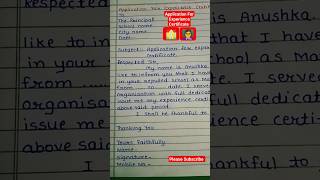 Application For Experience Certificate
To
The Principal
School name
City name
Date
Application For
Experience
Certificate
Subject:- Application for expe
certificate
Respected Sir,
My name is Anushka.
like to inform you that I have
in your reputed school as Ma
From to date. I serve
Organisation with full dedica
issue me experience certi
above said period.
I shall be thankful to
Thanking You
Yours Faithfully
Name -
Signature -
Mobile No -
Please Subscribe
respected
like to i
in your
From
organisa
issue me
above said
is Anushka.
that I have
as Ma
I served
full dedicat
certi-
thankful to